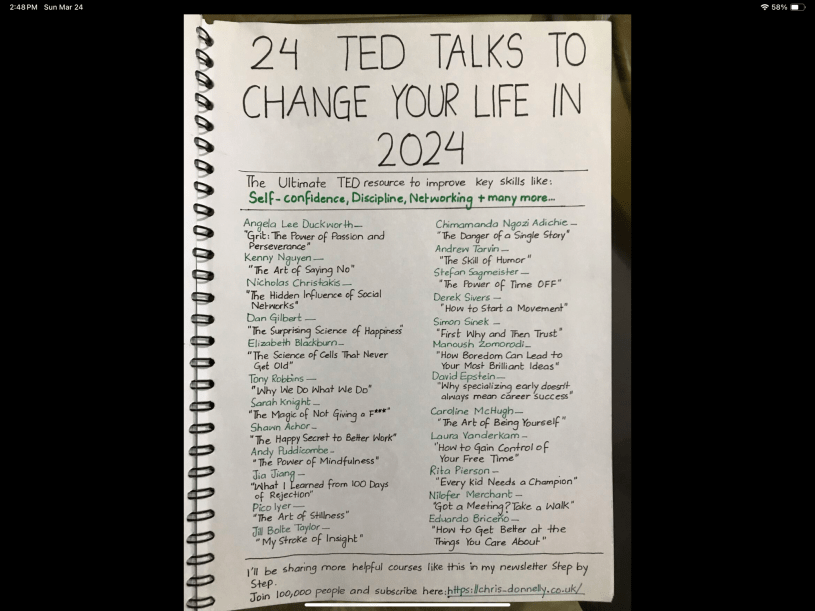 2:48 PM Sun Mar 24
58%
24 TED TALKS TO
CHANGE YOUR LIFE IN
2024
The Ultimate TED resource to improve key skills like:
Self-confidence, Discipline, Networking + many more...
Angela Lee Duckworth—
"Grit: The Power of Passion and
Perseverance"
Kenny Nguyen—
"The Art of Saying No"
Nicholas Christakis—
"The Hidden Influence of Social
Networks"
Dan Gilbert—
"The Surprising Science of Happiness"
Elizabeth Blackburn—
"The Science of Cells That Never
Get Old"
Tony Robbins—
"Why We Do What We Do"
Sarah Knight—
"The Magic of Not Giving a F***"
Shawn Achor—
"The Happy Secret to Better Work"
Andy Puddicombe-
"The Power of Mindfulness"
Jia Jiang—
"What I Learned from 100 Days
of Rejection"
Pico Iyer—
"The Art of Stillness"
Jill Bolte Taylor—
"My Stroke of Insight"
Chimamanda Ngozi Adichie—
"The Danger of a Single Story"
Andrew Tarvin—
"The Skill of Humor"
Stefan Sagmeister—
"The Power of Time OFF"
Derek Sivers—
"How to Start a Movement"
Simon Sinek—
"First Why and Then Trust"
Manoush Zomorodi—
"How Boredom Can Lead to
Your Most Brilliant Ideas"
David Epstein—
"Why specializing early doesn't
always mean career success"
Caroline McHugh—
"The Art of Being Yourself"
Laura Vanderkam—
"How to Gain Control of
Your Free Time"
Rita Pierson—
"Every Kid Needs a Champion"
Nilofer Merchant—
"Got a Meeting? Take a Walk"
Eduardo Briceño—
"How to Get Better at the
Things You Care About"
I'll be sharing more helpful courses like this in my newsletter Step by
Step.
Join 100,000 people and subscribe here: https://chris-donnelly.co.uk/